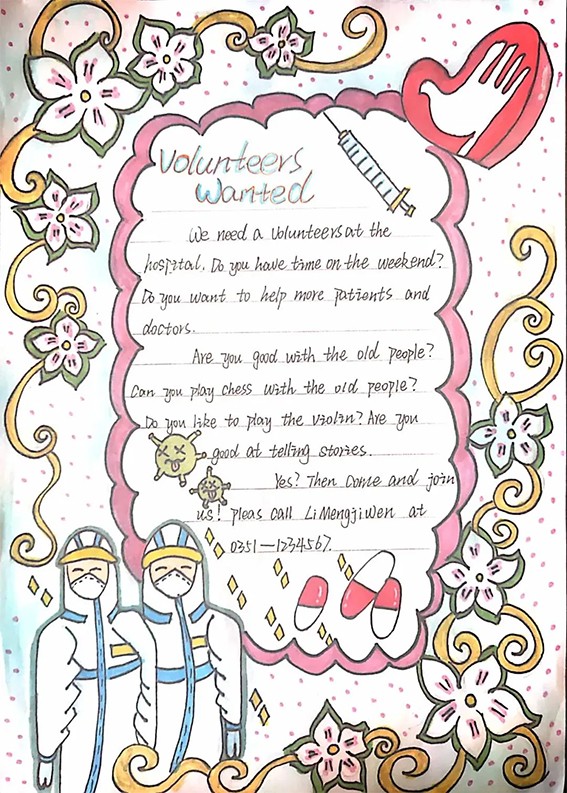 Volunteers
Wanted
We need a Volunteers at the
hospital. Do you have time on the weekend?
Do you want to help more patients and
doctors.
Are you good with the old people?
Can you play chess with the old people?
Do you like to play the violin? Are you
good at telling stories.
Yes? Then Come and join
us! pleas call LiMengjiWen at
0351—1234567.